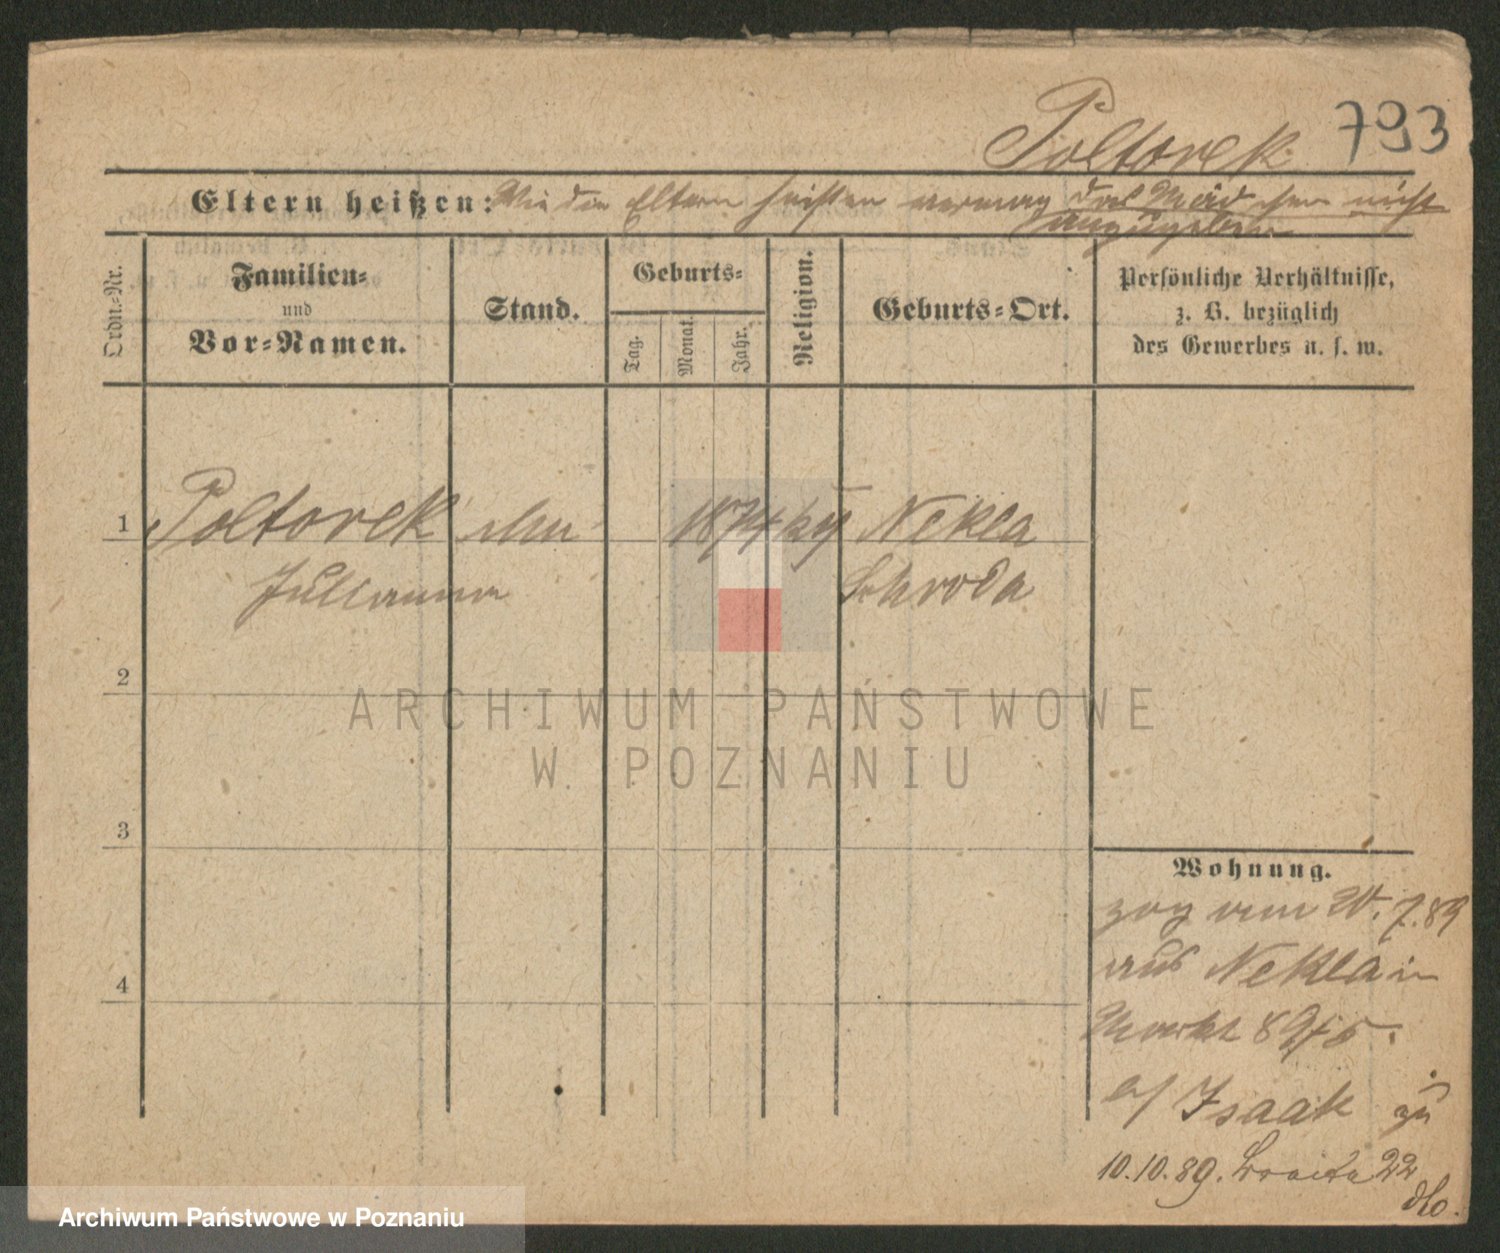 Poltorek 793
Eltern heißen: Wie die Eltern heißen vermag das Mädchen nicht
anzugeben
Ordn.-Nr.
Familien-
und
Vor-Namen.
Stand.
Geburts-
Tag.
Monat.
Jahr.
Religion.
Geburts-Ort.
Persönliche Verhältnisse,
z. B. bezüglich
des Gewerbes u. s. w.
1 Poltorek 1874 Nekla
Julianna Schroda
2
3
4
Wohnung.
zog am 20.7.89
aus Nekla in
Markt
b/ Isaak zu
10.10.89. Breite 22
ARCHIWUM PAŃSTWOWE
W POZNANIU
Archiwum Państwowe w Poznaniu